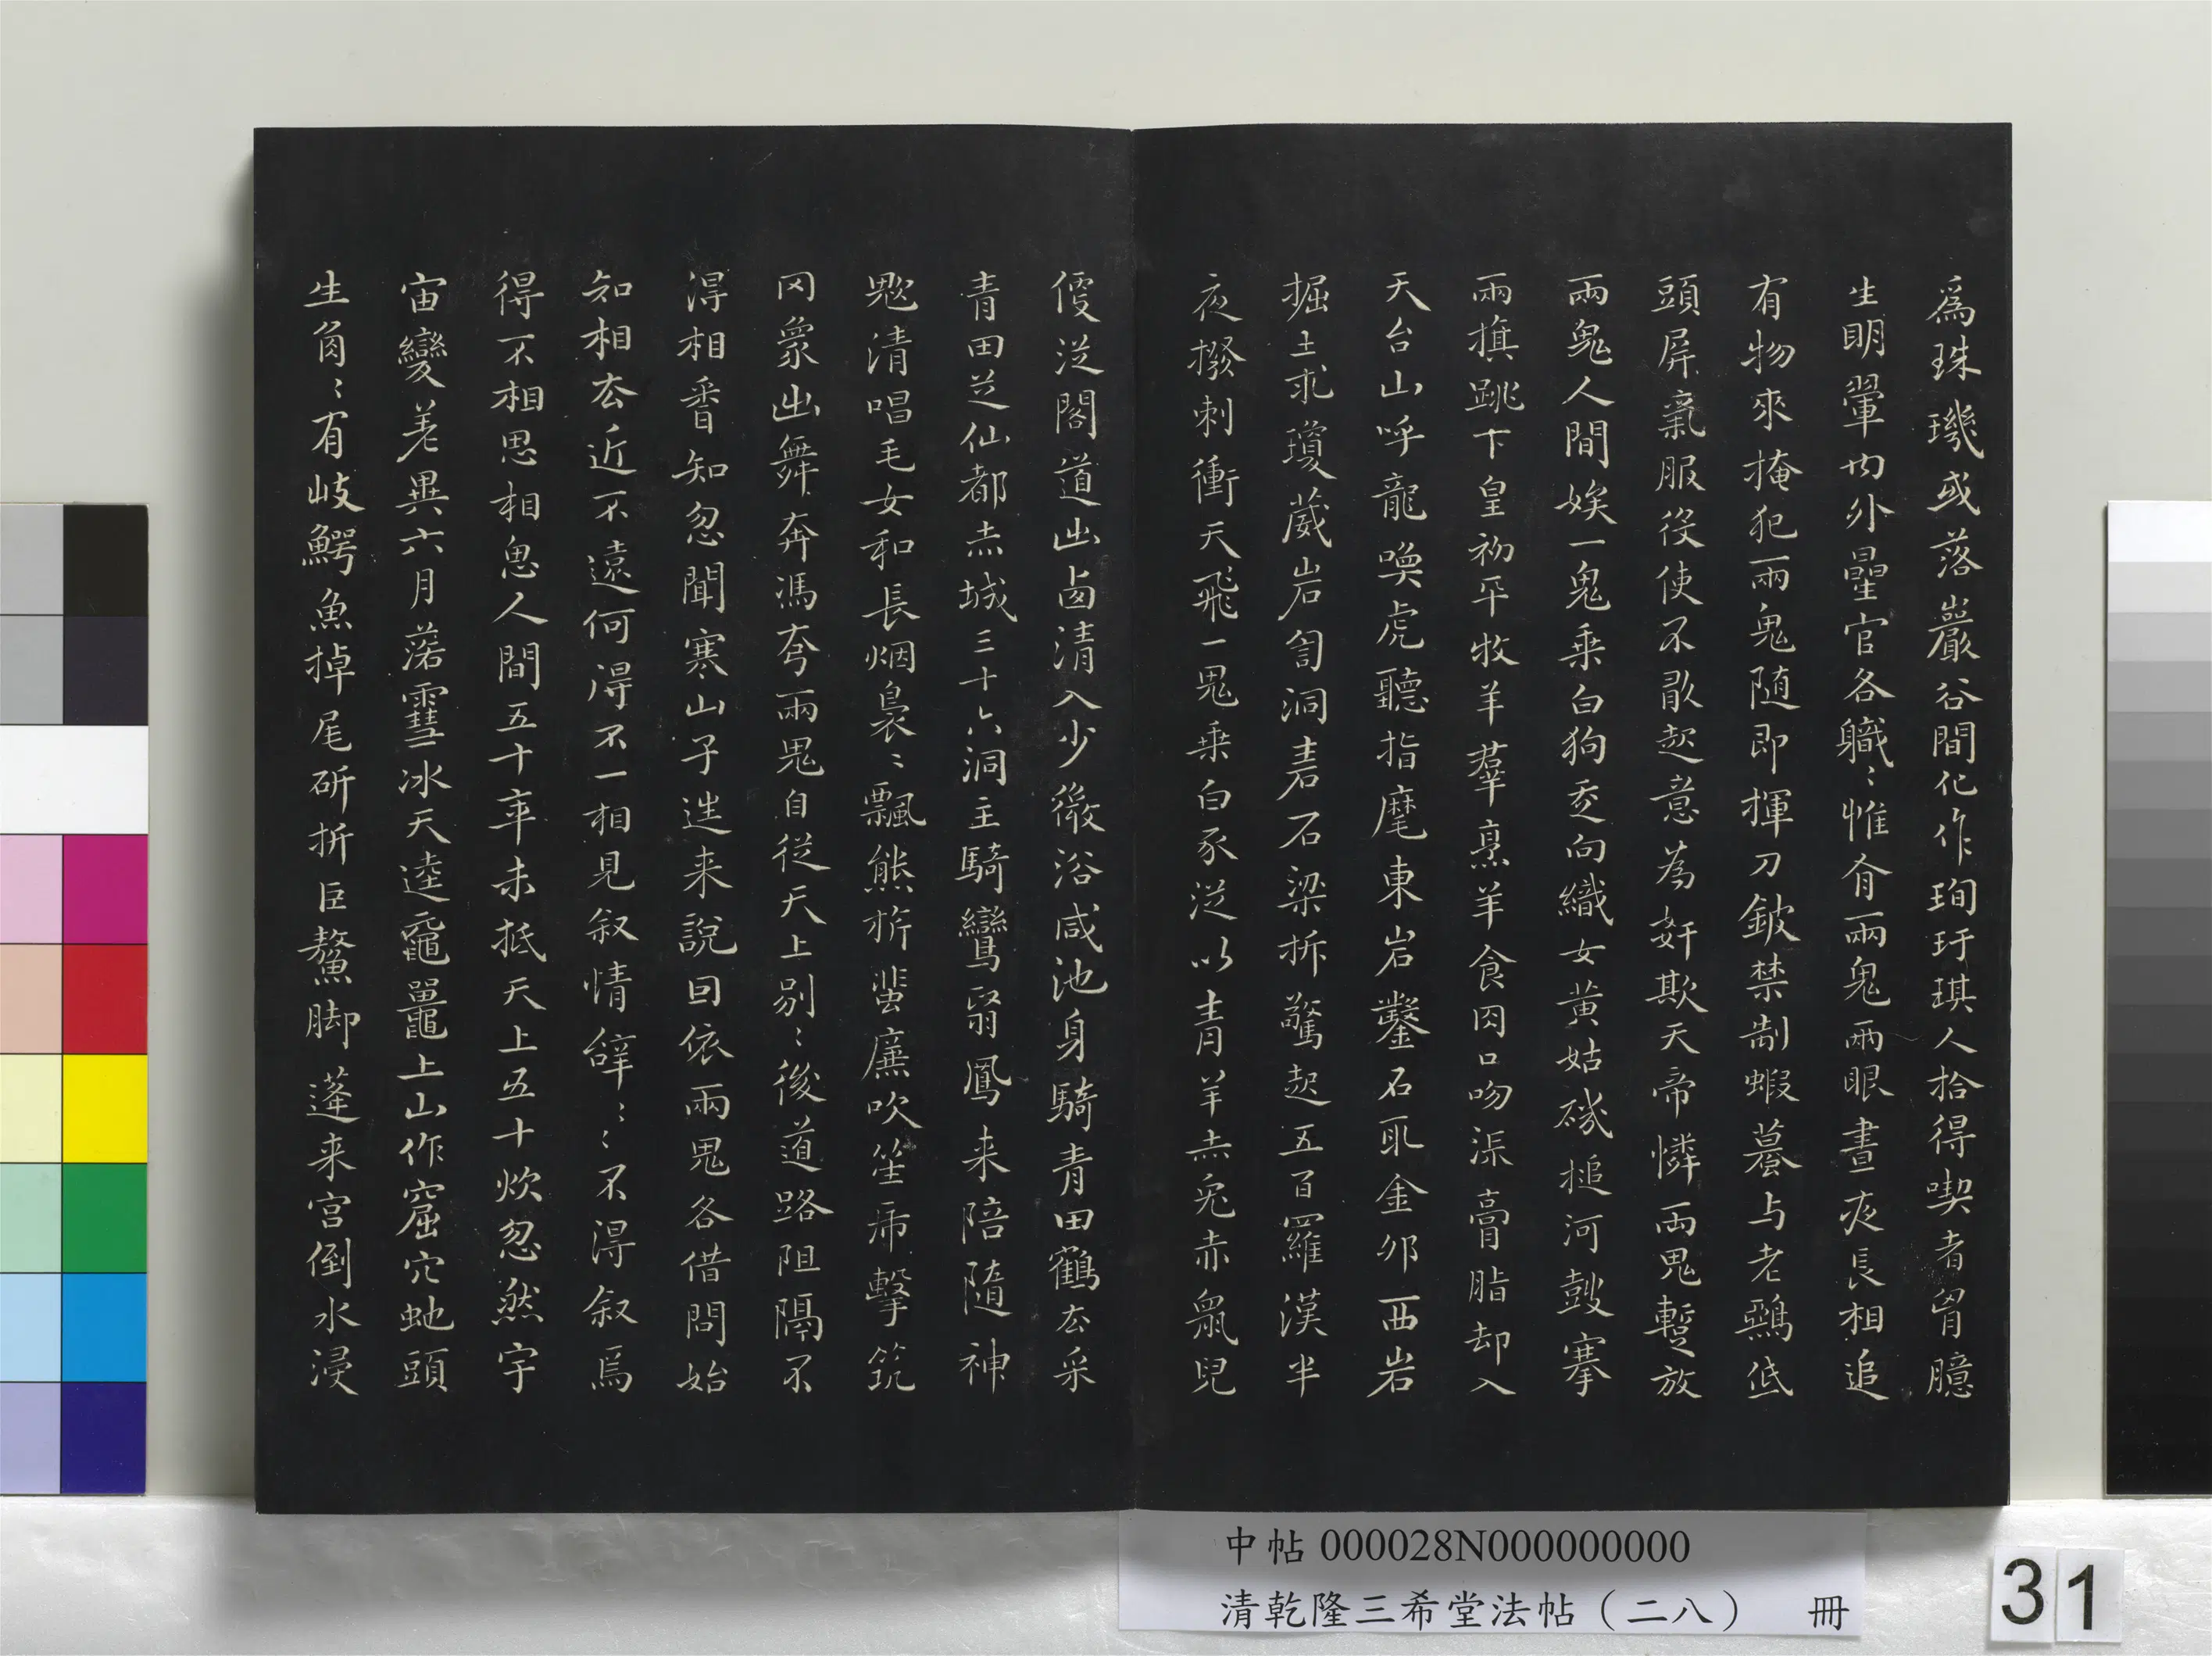 為珠璣或落巖谷間化作珣玗琪人拾得喫者胷臆
生明翬內外星官各職〻惟有兩鬼兩眼晝夜長相追
有物來掩犯兩鬼隨即揮刀鈹禁制蝦蟇与老鵶低
頭屏氣服役使不敢起意為奸欺天帝憐兩鬼暫放
兩鬼人間娭一鬼乘白狗走向織女黃姑磯搥河鼓搴
兩旗跳下皇初平牧羊羣烹羊食肉口吻流膏脂却入
天台山呼龍喚虎聽指麾東岩鑿石取金卯西岩
掘土求瓊葳岩訇洞砉石梁拆驚起五百羅漢半
夜撥剌衝天飛一鬼乘白豕從以青羊赤兔赤鼠兒
便從閣道出西清入少微浴咸池身騎青田鶴去采
青田芝仙都赤城三十六洞主騎鸞翳鳳来陪隨神
魃清唱毛女和長烟裊〻飄熊旂蜚廉吹笙虎擊筑
罔象出舞奔馮夷兩鬼自從天上別〻後道路阻隔不
得相番知忽聞寒山子迯来說回依兩鬼各借問始
知相去近不遠何得不一相見叙情辝〻〻不得叙焉
得不相思相思人間五十年未抵天上五十炊忽然宇
宙變差異六月落雪冰天逵黿鼉上山作窟穴虵頭
生角〻有岐鰐魚掉尾斫折巨鰲脚蓬来宮倒水浸
中帖 000028N000000000
清乾隆三希堂法帖（二八） 冊
31